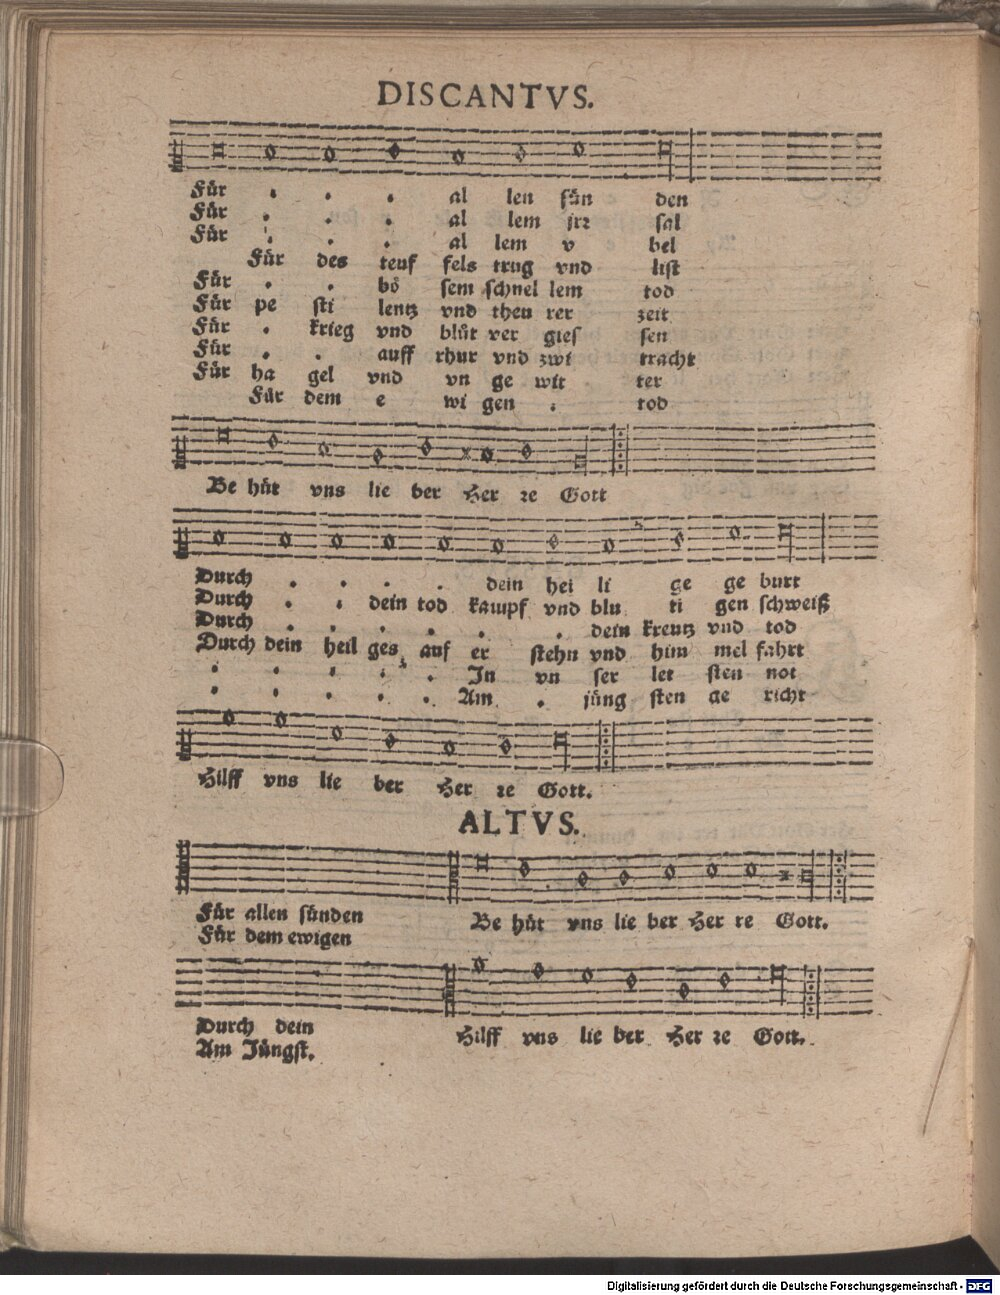 DISCANTVS.
Für . . . al len sün den
Für . . . al lem jrr sal
Für . . . al lem v bel
Für des teuf fels trug vnd list
Für . . bö sem schnel lem tod
Für pe sti lentz vnd theu rer zeit
Für . krieg vnd blůt ver gies sen
Für . . auff rhur vnd zwi tracht
Für ha gel vnd vn ge wit ter
Für dem e wi gen . tod
Be hůt vns lie ber Her re Gott
Durch . . . . dein hei li ge ge burt
Durch . . dein tod kampf vnd blu ti gen schweiß
Durch . . . . . . dein kreutz vnd tod
Durch dein heil ges auf er stehn vnd him mel fahrt
. . . . . In vn ser let sten not
. . . . . Am . jüng sten ge richt
Hilff vns lie ber Her re Gott.
ALTVS.
Für allen sünden Be hůt vns lie ber Her re Gott.
Für dem ewigen
Durch dein Hilff vns lie ber Her re Gott.
Am Jüngst.
Digitalisierung gefördert durch die Deutsche Forschungsgemeinschaft - DFG